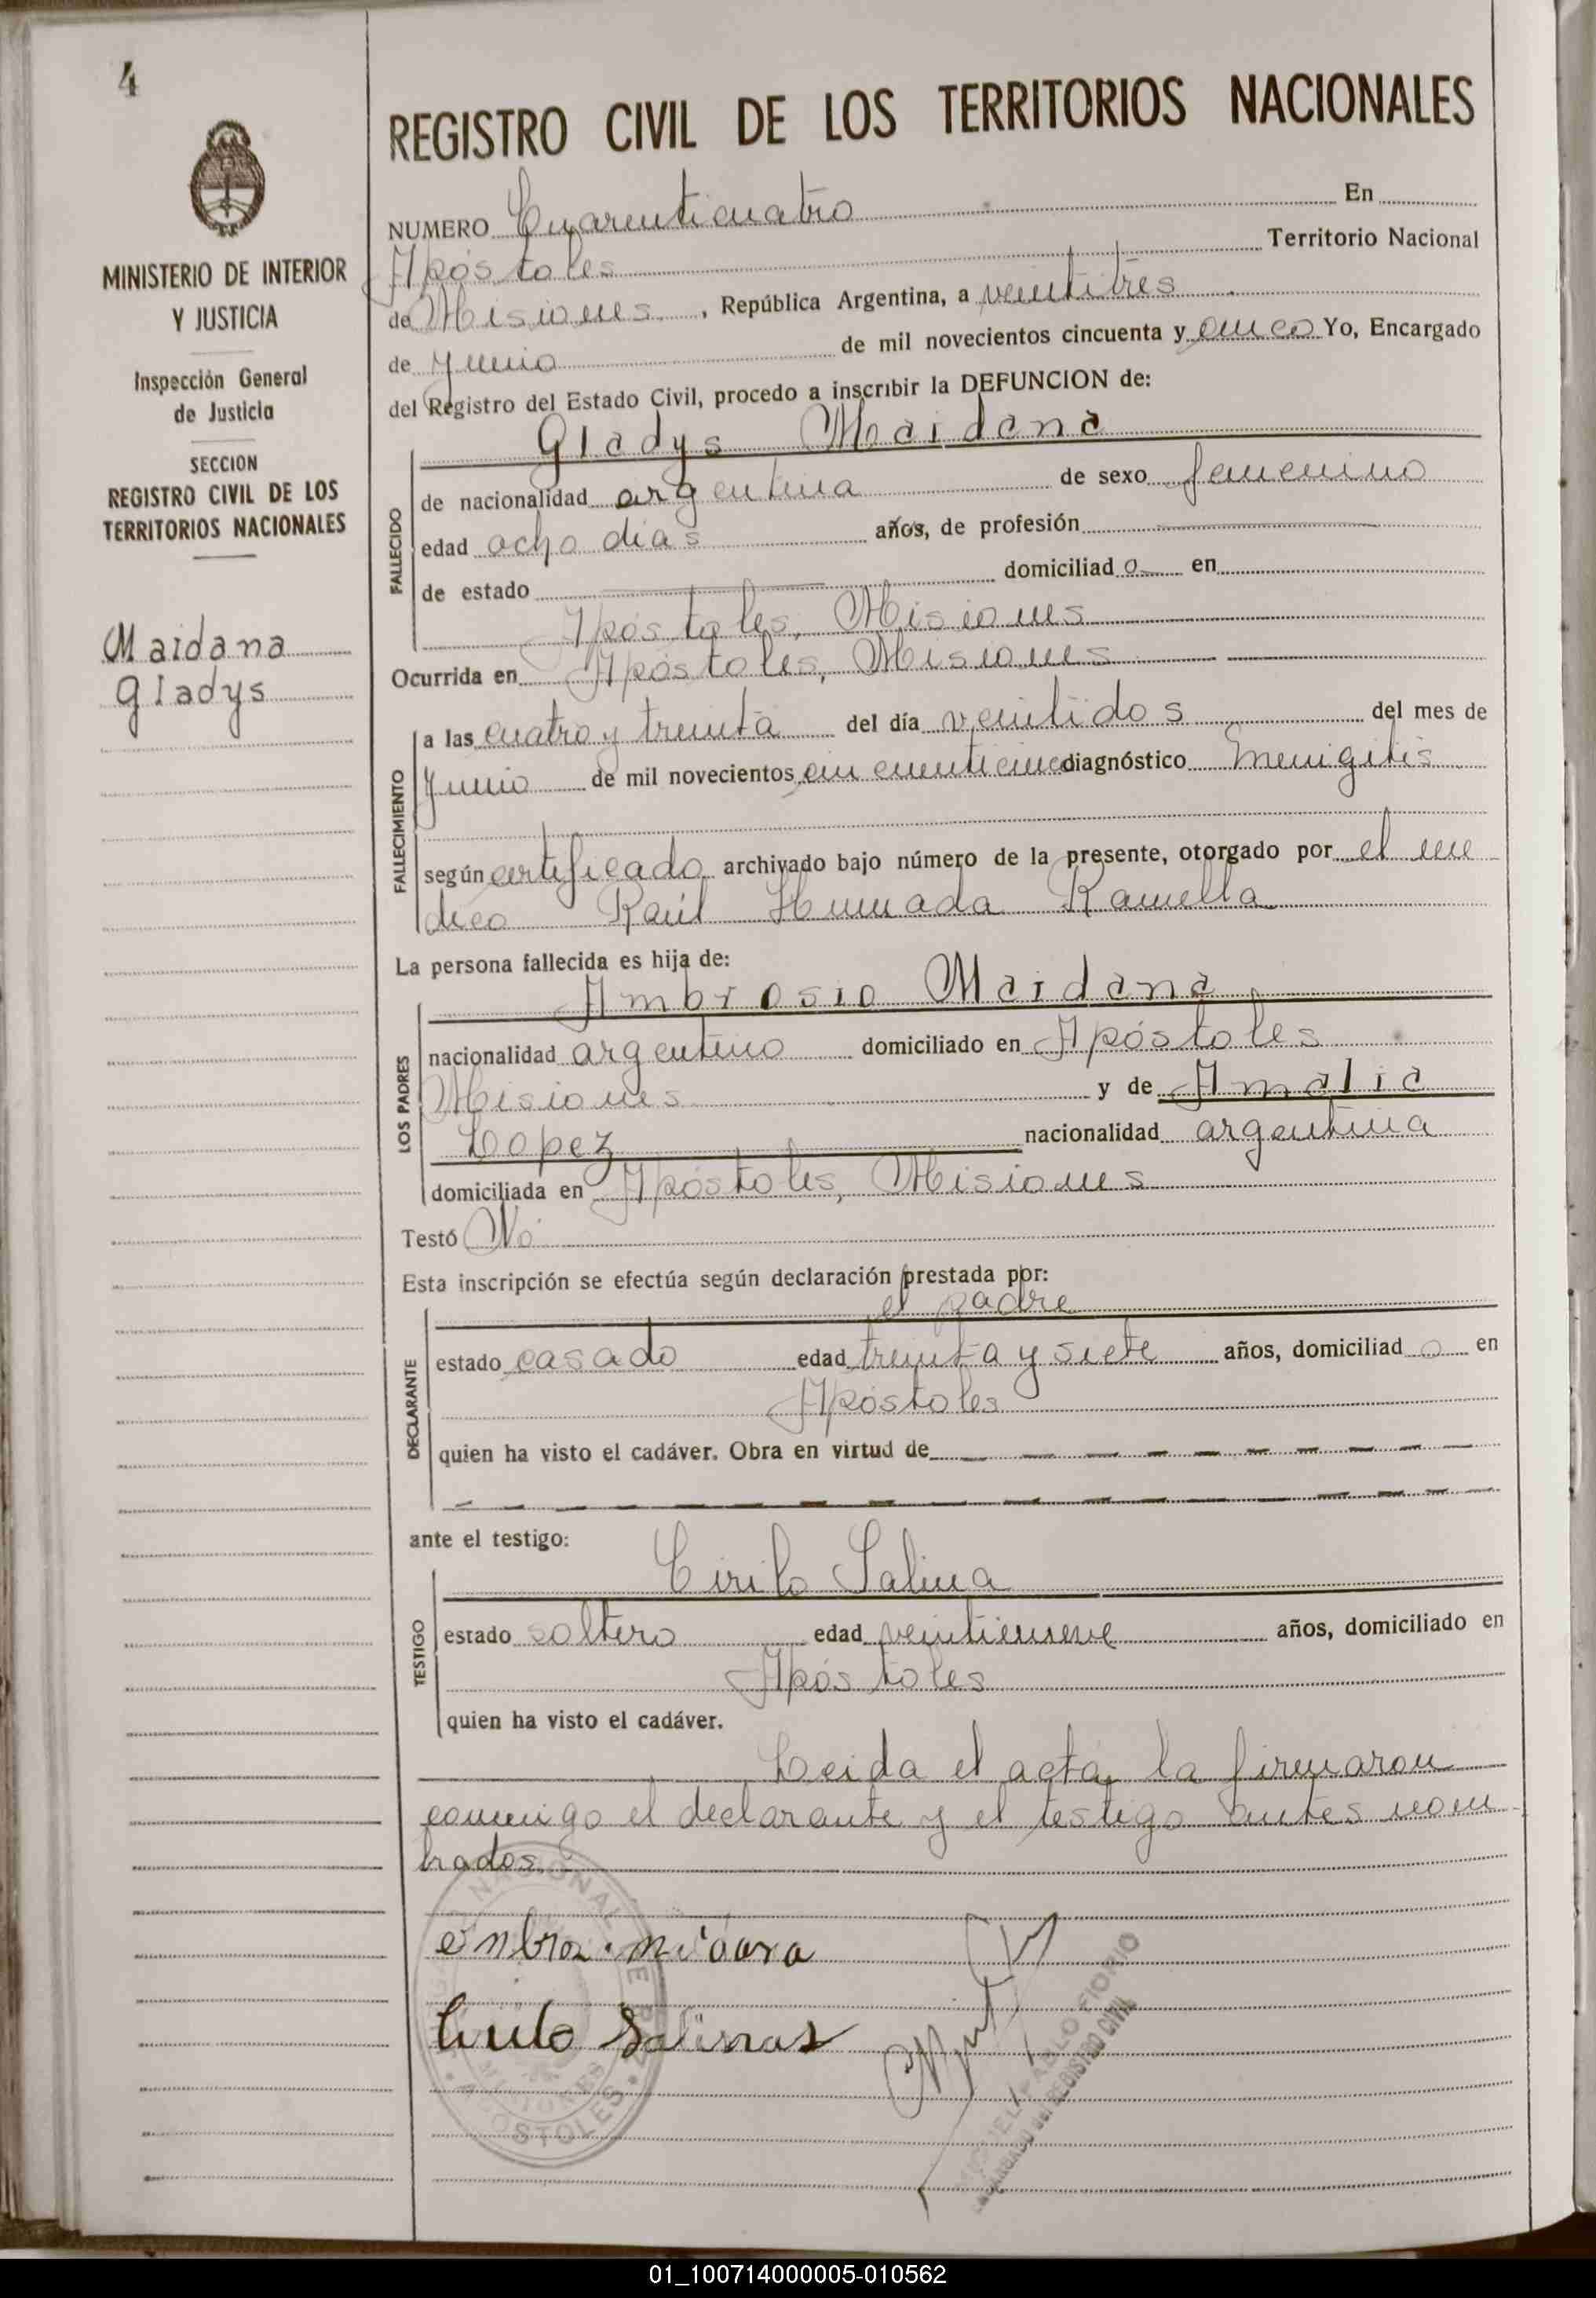 4
MINISTERIO DE INTERIOR
Y JUSTICIA
Inspección General
de Justicia
SECCION
REGISTRO CIVIL DE LOS
TERRITORIOS NACIONALES
Maidana
Gladys
REGISTRO CIVIL DE LOS TERRITORIOS NACIONALES
NUMERO Cuarenticuatro En
Apóstoles Territorio Nacional
de Misiones, República Argentina, a veintitres
de Junio de mil novecientos cincuenta y cinco Yo, Encargado
del Registro del Estado Civil, procedo a inscribir la DEFUNCION de:
Gladys Maidana
FALLECIDO
de nacionalidad argentina de sexo femenino
edad ocho días años, de profesión
de estado domiciliado en
Apóstoles, Misiones
Ocurrida en Apóstoles, Misiones
FALLECIMIENTO
a las cuatro y treinta del día veintidos del mes de
Junio de mil novecientos cincuenticinco diagnóstico Menigitis
según certificado archivado bajo número de la presente, otorgado por el me
dico Raúl Humada Ramella
La persona fallecida es hija de:
Ambrosio Maidana
LOS PADRES
nacionalidad argentino domiciliado en Apóstoles
Misiones y de Amalia
Lopez nacionalidad argentina
domiciliada en Apóstoles, Misiones
Testó No
Esta inscripción se efectúa según declaración prestada por:
el padre
DECLARANTE
estado casado edad treinta y siete años, domiciliado en
Apóstoles
quien ha visto el cadáver. Obra en virtud de
ante el testigo:
Cirilo Salina
TESTIGO
estado soltero edad veintinueve años, domiciliado en
Apóstoles
quien ha visto el cadáver.
Leida el acta, la firmaron
conmigo el declarante y el testigo antes nom
brados.
Cirilo Salinas
NACIONAL
MISIONES
APOSTOLES
MIGUEL PABLO FIORIO
ENCARGADO DEL REGISTRO CIVIL
01_100714000005-010562